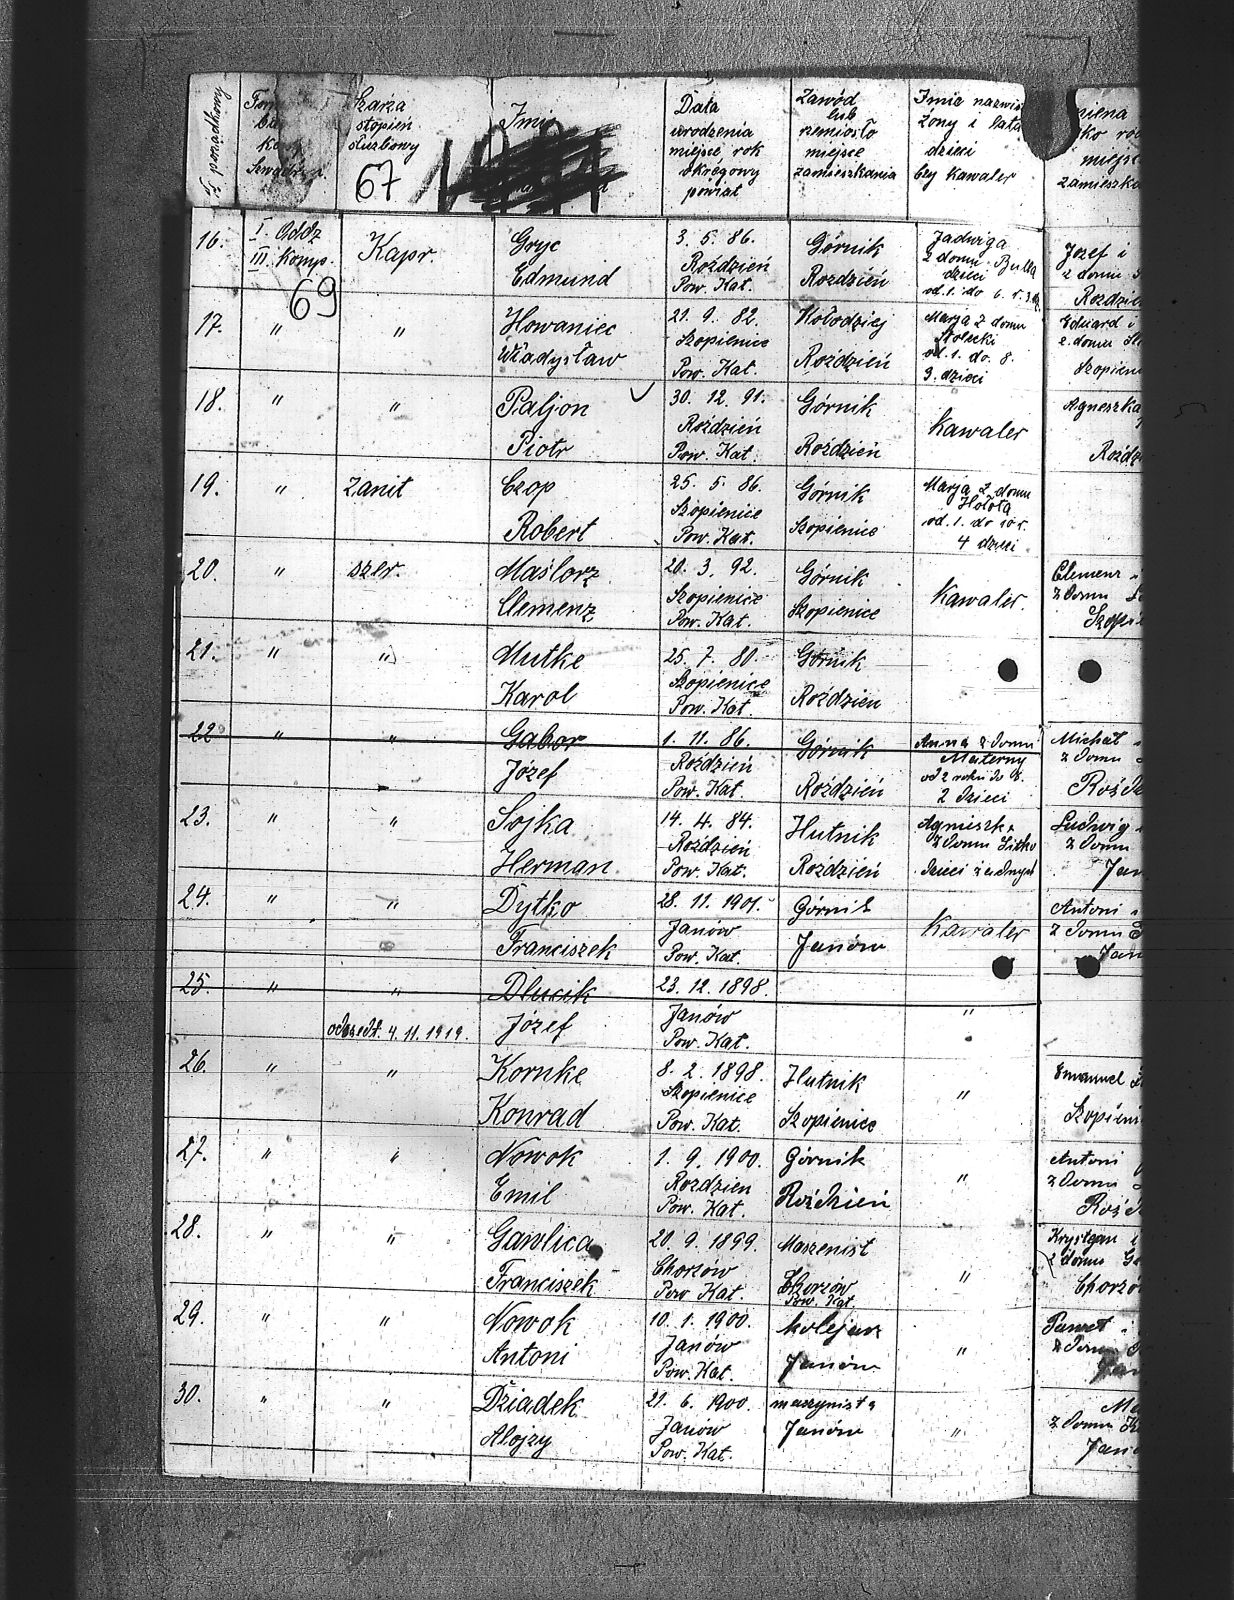 porządkowy
Szarża
stopień
służbowy
67
Imię
Data
urodzenia
miejsce rok
okręgowy
powiat
Zawód
lub
rzemiosło
miejsce
zamieszkania
Imię nazwis
żony i lata
dzieci
czy Kawaler
miejsc
zamieszka
16.
I. Oddz
III. Komp.
69
Kapr
Gryc
Edmund
3. 5. 86.
Roździeń
Pow. Kat.
Górnik
Roździeń
Jadwiga
z domu Bulla
dzieci
od. 1. do 6.
Józef i
z domu
Roździe
17.
"
"
Howaniec
Władysław
21. 9. 82.
Szopienice
Pow. Kat.
Kołodziej
Roździeń
Marja z domu
Stolecki
od. 1. do. 8.
3. dzieci
Eduard i
z. domu
Szopieni
18.
"
"
Paljon
Piotr
30. 12. 91.
Roździeń
Pow. Kat.
Górnik
Roździeń
Kawaler
Agneszka
Roźdz
19.
"
Zanit
Czop
Robert
25. 5. 86.
Szopienice
Pow. Kat.
Górnik
Szopienice
Marja z domu
Hołota
od. 1. do 10 r.
4 dzieci
20.
"
szer.
Maślorz
Clemenz
20. 3. 92.
Szopienice
Pow. Kat.
Górnik
Szopienice
Kawaler.
Clemenz
z Domu
Szopie
21.
"
"
Mutke
Karol
25. 7. 80.
Szopienice
Pow. Kat.
Górnik
Roździen
22
"
"
Gabor
Józef
1. 11. 86.
Roździeń
Pow. Kat.
Górnik
Roździeń
Anna z Domu
Materny
od 2 roku do 8.
2 Dzieci
Michał
z Domu
Roźd
23.
"
"
Sojka
Herman.
14. 4. 84.
Roździeń
Pow. Kat.
Hutnik
Roździeń
Agnieszka
z Domu Sitko
Dzieci żadnych
Ludwig
z Domu
Jan
24.
"
"
Dytko
Franciszek
28. 11. 1901.
Janów
Pow. Kat.
Górnik
Janów
Kawaler
Antoni
z Domu
Jan
25.
"
"
odszedł. 4. 11. 1919.
Dlucik
Józef
23. 12. 1898.
Janów
Pow. Kat.
"
26.
"
"
Kornke
Konrad
8. 2. 1898.
Szopienice
Pow. Kat.
Hutnik
Szopienice
"
Emanuel
Szopieni
27.
"
"
Nowok
Emil
1. 9. 1900.
Rozdzien
Pow. Kat.
Górnik
Roździeń
"
Antoni
z Domu
Roźd
28.
"
"
Gawlica
Franciszek
20. 9. 1899.
Chorzów
Pow Kat.
Maszenist
Chorzów
Pow. Kat.
"
Krystjan i
z domu
Chorzó
29.
"
"
Nowok
Antoni
10. 1. 1900.
Janów
Pow. Kat.
Kolejarz
Janów
"
Paweł
z Domu
Jan
30.
"
"
Dziadek
Alojzy
21. 6. 1900.
Janów
Pow. Kat.
maszynista
Janów
"
z Domu
Jan